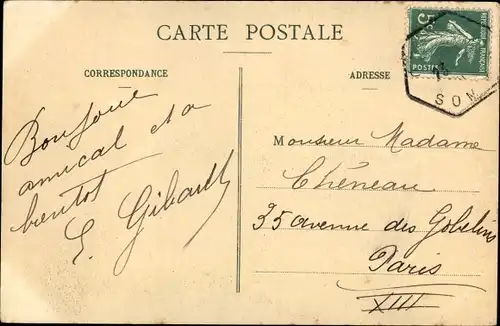 CARTE POSTALE
CORRESPONDANCE
ADRESSE
5
POSTES
SOM
Bonjour
amical et a
bientot
E. Gibault
Monsieur Madame
Chéneau
35 avenue des Gobelins
Paris
XIII